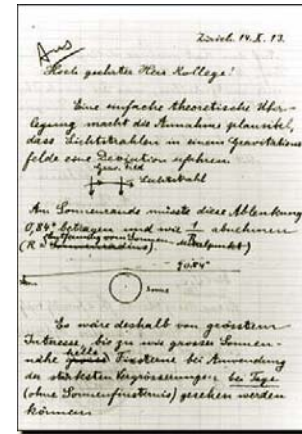 Zürich. 14. X. 13.
Hoch geehrter Herr Kollege!
Eine einfache theoretische Über-
legung macht die Annahme plausibel,
dass Lichtstrahlen in einem Gravitations-
felde eine Deviation erfahren.
Grav. Feld
Lichtstrahl
Am Sonnenrande müsste diese Ablenkung
0,84" betragen und wie 1/R abnehmen
(R = Sonnenradius).
0.84"
Sonne
Es wäre deshalb von grösstem
Interesse, bis zu wie grosser Sonnen-
nähe helle Fixsterne bei Anwendung
der stärksten Vergrösserungen bei Tage
(ohne Sonnenfinsternis) gesehen werden
können.